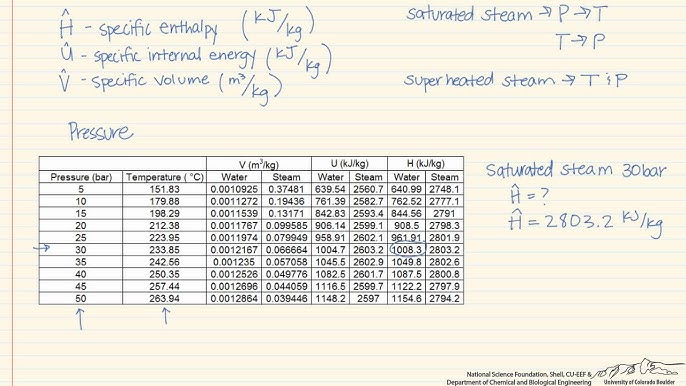 Ĥ - specific enthalpy (kJ/kg)
Û - specific internal energy (kJ/kg)
V̂ - specific volume (m³/kg)
saturated steam → P → T
T → P
superheated steam → T & P
Pressure
V (m³/kg) U (kJ/kg) H (kJ/kg)
Pressure (bar) Temperature (°C) Water Steam Water Steam Water Steam
5 151.83 0.0010925 0.37481 639.54 2560.7 640.99 2748.1
10 179.88 0.0011272 0.19436 761.39 2582.7 762.52 2777.1
15 198.29 0.0011539 0.13171 842.83 2593.4 844.56 2791
20 212.38 0.0011767 0.099585 906.14 2599.1 908.5 2798.3
25 223.95 0.0011974 0.079949 958.91 2602.1 961.91 2801.9
→ 30 233.85 0.0012167 0.066664 1004.7 2603.2 1008.3 2803.2
35 242.56 0.001235 0.057058 1045.5 2602.9 1049.8 2802.6
40 250.35 0.0012526 0.049776 1082.5 2601.7 1087.5 2800.8
45 257.44 0.0012696 0.044059 1116.5 2599.7 1122.2 2797.9
50 263.94 0.0012864 0.039446 1148.2 2597 1154.6 2794.2
saturated steam 30bar
Ĥ = ?
Ĥ = 2803.2 kJ/kg
National Science Foundation, Shell, CU-EEF &
Department of Chemical and Biological Engineering
University of Colorado Boulder